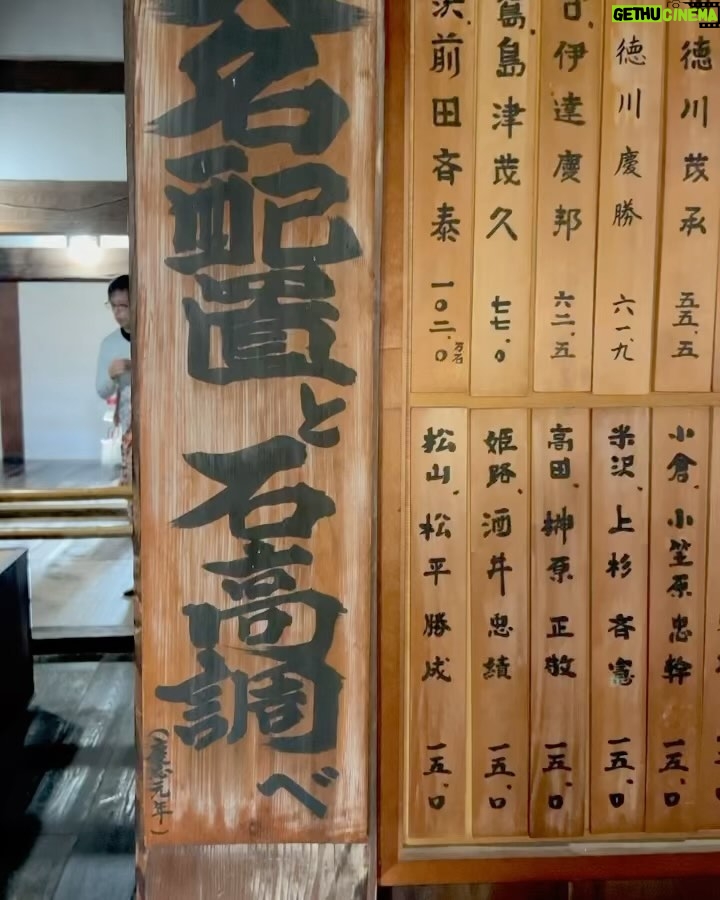 名配置と石高調べ
(慶応元年)
徳川茂承 五五.五
徳川慶勝 六一.九
伊達慶邦 六二.五
島島津茂久 七七.〇
沢前田斉泰 一〇二.〇万石
小倉、小笠原忠幹 一五.〇
米沢、上杉斉憲 一五.〇
高田、榊原正敬 一五.〇
姫路、酒井忠績 一五.〇
松山、松平勝成 一五.〇
GETHUCINEMA